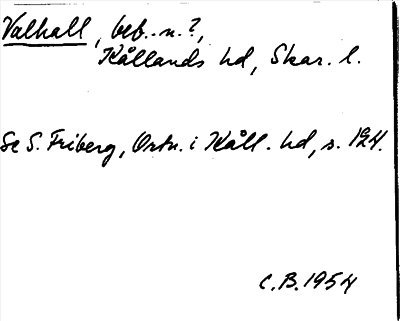 Valhall, beb.-n.?,
Kållands hd, Skar. l.
Se S. Friberg, Ortn. i Kåll. hd, s. 124.
C.B. 1954